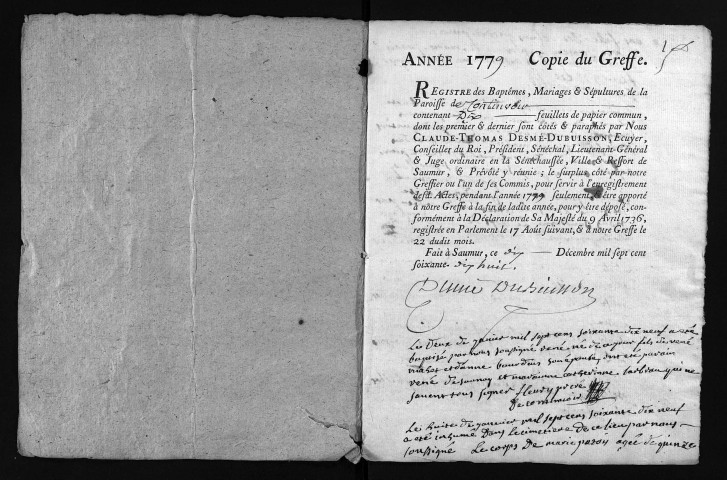 ANNÉE 1779 Copie du Greffe.
REGISTRE des Baptêmes, Mariages & Sépultures de la
Paroisse de Continvoir
contenant Dix feuillets de papier commun,
dont les premier & dernier sont côtés & paraphés par Nous
CLAUDE-THOMAS DESMÉ-DUBUISSON, Ecuyer,
Conseiller du Roi, Président, Sénéchal, Lieutenant-Général
& Juge ordinaire en la Sénéchaussée, Ville & Ressort de
Saumur, & Prévôté y réunie ; le surplus côté par notre
Greffier ou l'un de ses Commis, pour servir à l'enregistrement
desd. Actes, pendant l'année 1779 seulement, & être apporté
à nôtre Greffe à la fin de ladite année, pour y être déposé, con-
formément à la Déclaration de Sa Majesté du 9 Avril 1736,
registrée en Parlement le 17 Août suivant, & à notre Greffe le
22 dudit mois.
Fait à Saumur, ce dix Décembre mil sept cent
soixante-dix huit.
Desmé Dubuisson
Le deux de janvier mil sept cens soixante dix neuf a été
baptisé par nous soussigné rené né de ce jour fils de rené
et d'anne son épouse ont été parain
rené et maraine catherinne qui ne
savent tous signer fleury prêtre
de continvoir
Le huite de janvier mil sept cens soixante dix neuf
a été inhumé Dans le cimetiere de ce lieu par nous
soussigné Le corps De marie agée de quinze